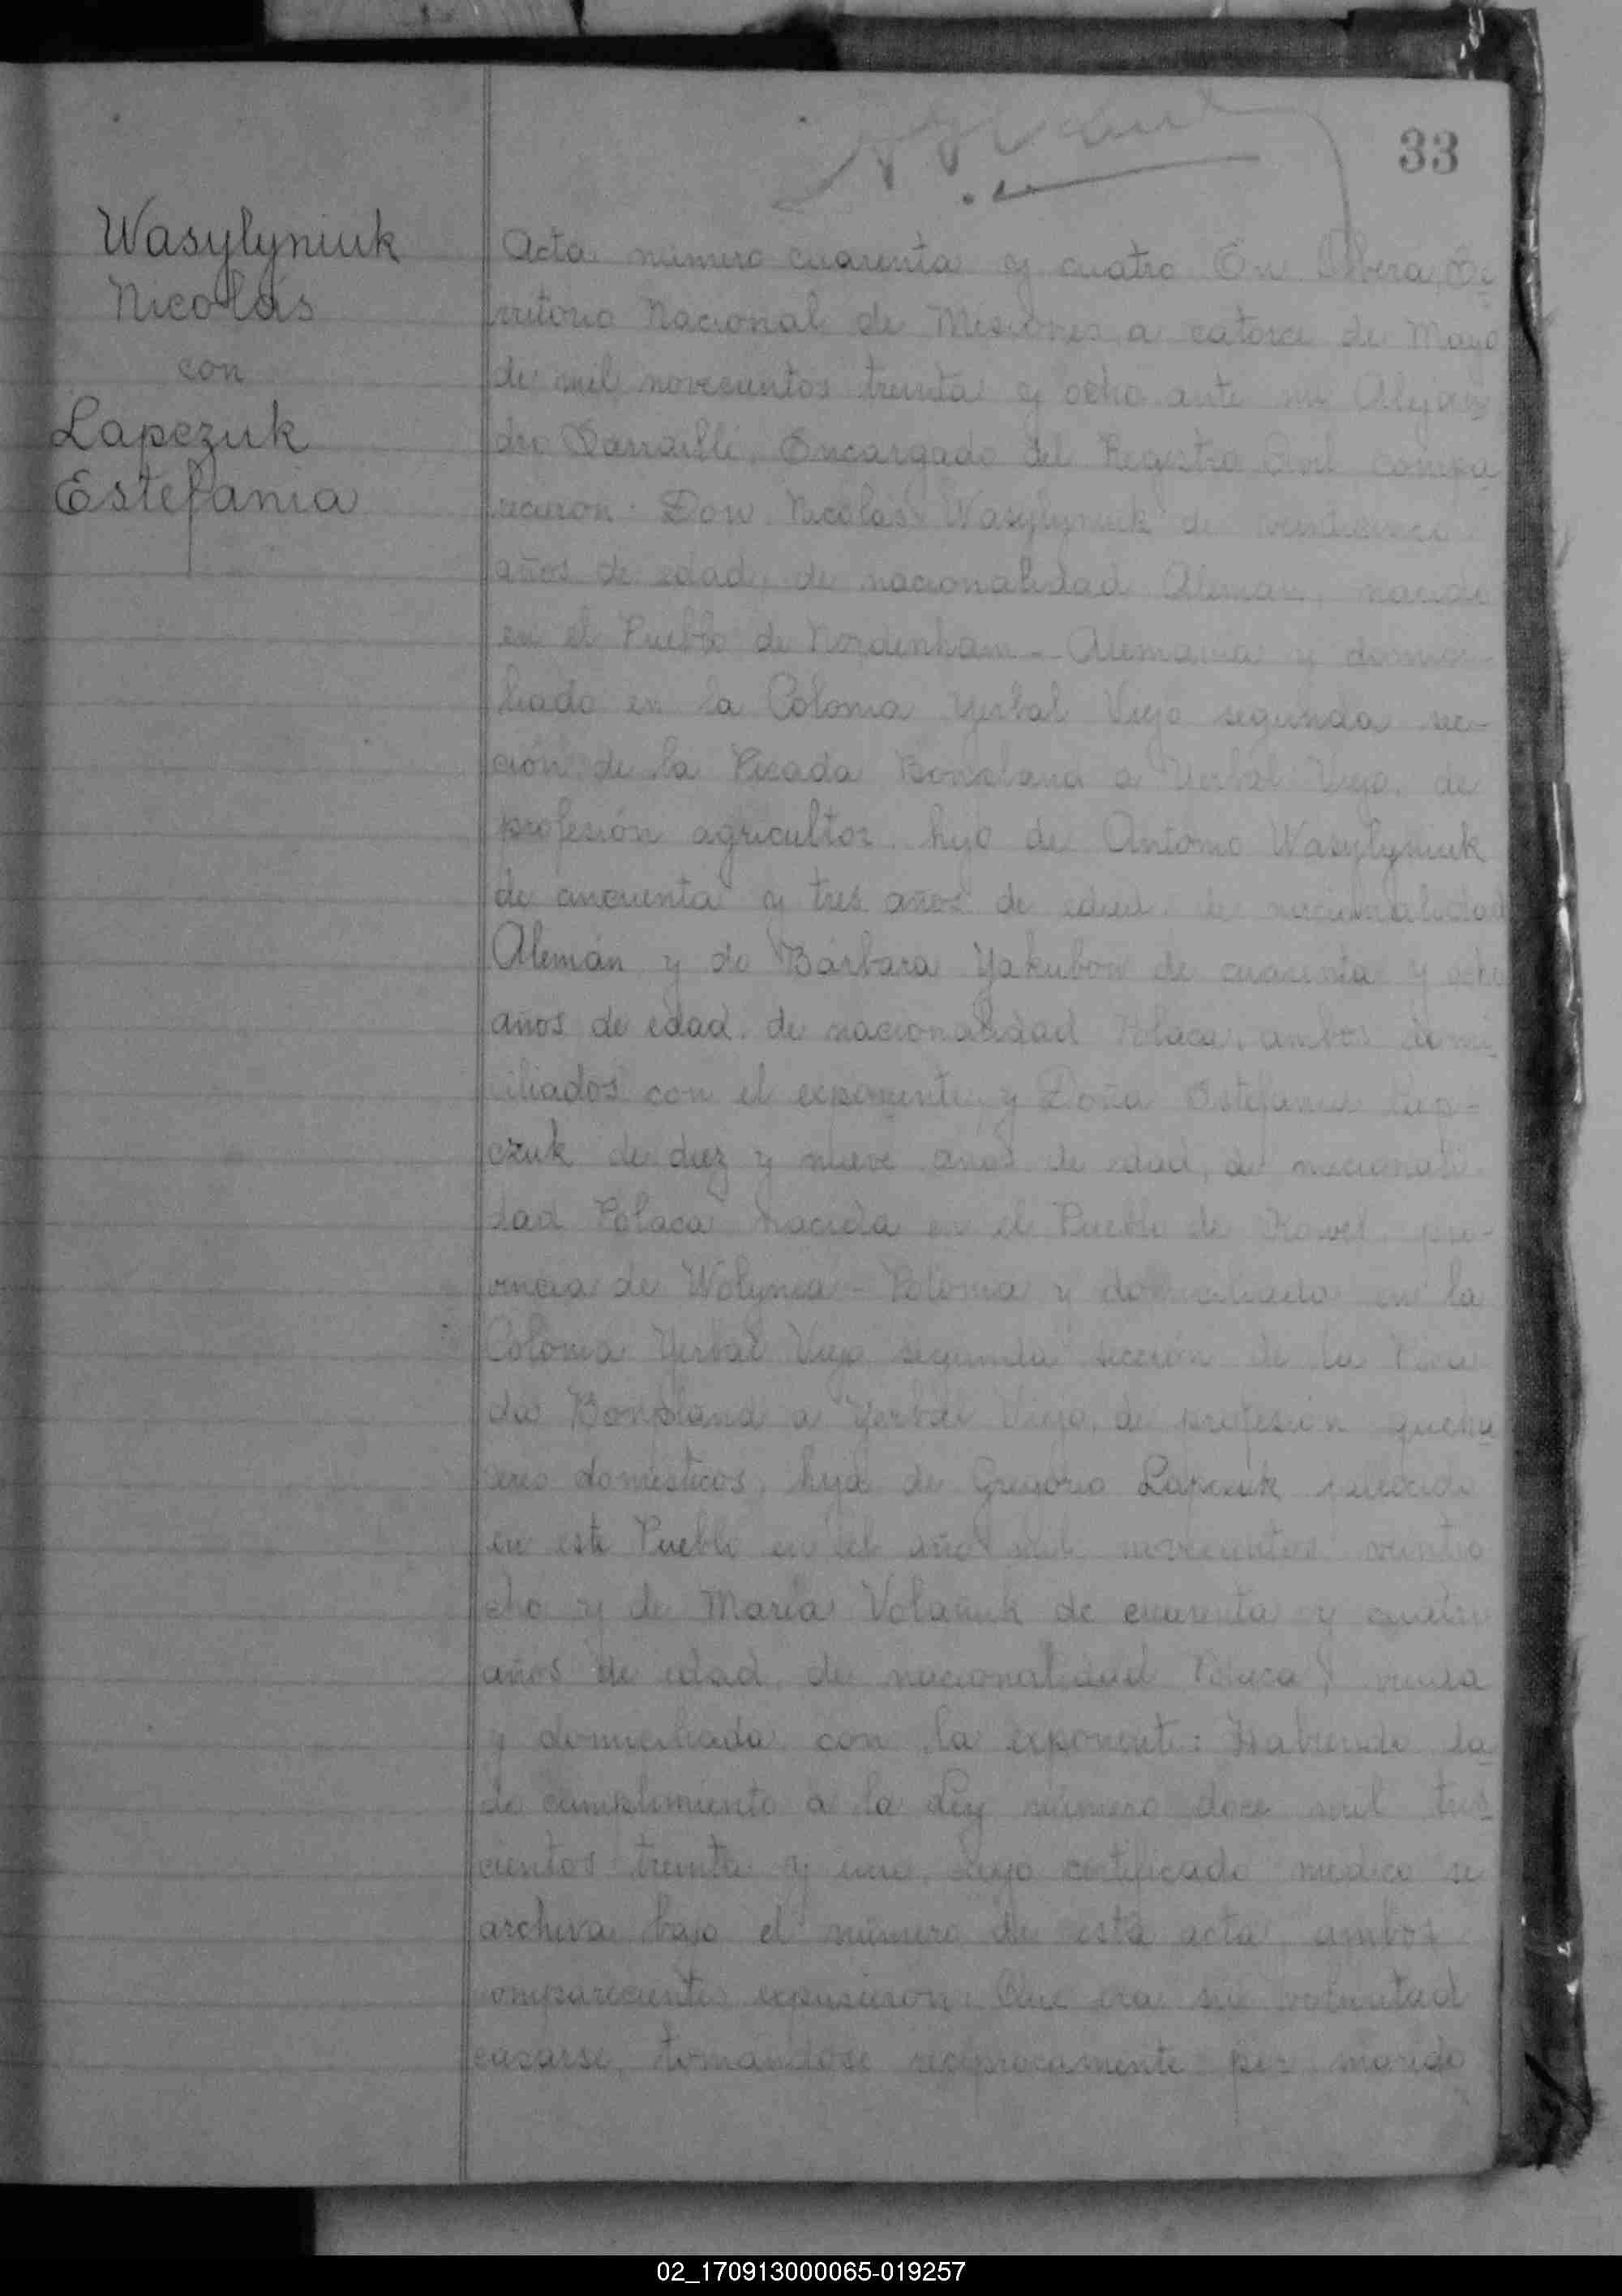 33
Wasylyniuk
Nicolás
con
Lapczuk
Estefania
Acta número cuarenta y cuatro En Obera, Te-
rritorio Nacional de Misiones, a catorce de Mayo
de mil novecientos treinta y ocho ante mi Alejan-
dro Encargado del Registro Civil compa-
recieron: Don Nicolás Wasylyniuk de
años de edad, de nacionalidad Alemán, nacido
en el Pueblo de Nordenham - Alemania y domici-
liado en la Colonia Yerbal Viejo segunda sec-
ción de la Picada Bonpland a Yerbal Viejo, de
profesión agricultor, hijo de Antonio Wasylyniuk
de cincuenta y tres años de edad, de nacionalidad
Alemán y de Bárbara Yakubow de cuarenta y ocho
años de edad, de nacionalidad Polaca, ambos domi-
ciliados con el exponente, y Doña Estefania Lap-
czuk de diez y nueve años de edad, de nacionali-
dad Polaca nacida en el Pueblo de Kowel, pro-
vincia de Wolynia - Polonia y domiciliada en la
Colonia Yerbal Viejo segunda sección de la Pica-
da Bonpland a Yerbal Viejo, de profesión queha-
ceres domésticos, hija de Gregorio Lapczuk fallecido
en este Pueblo en el año mil novecientos veintio-
cho y de María Volaniuk de cuarenta y cuatro
años de edad, de nacionalidad Polaca, viuda
y domiciliada con la exponente: Habiendo da-
do cumplimiento a la Ley número doce mil tres-
cientos treinta y uno, cuyo certificado médico se
archiva bajo el número de esta acta, ambos
comparecientes expusieron: Que era su voluntad
casarse, tomándose recíprocamente por marido
02_170913000065-019257